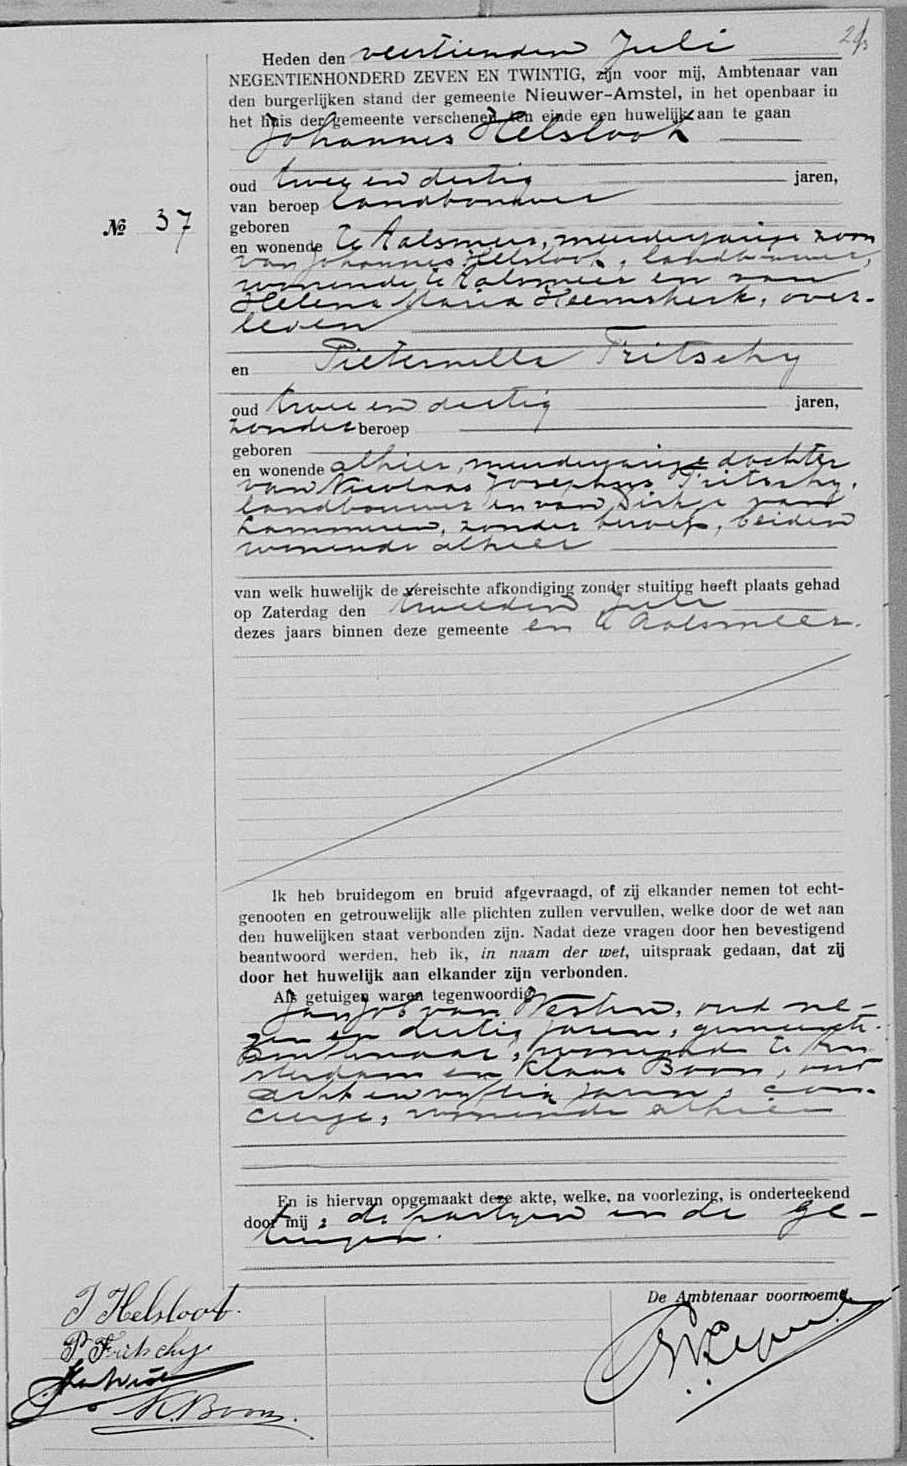 Heden den veertienden Juli
NEGENTIENHONDERD ZEVEN EN TWINTIG, zijn voor mij, Ambtenaar van
den burgerlijken stand der gemeente Nieuwer-Amstel, in het openbaar in
het huis der gemeente verschenen, ten einde een huwelijk aan te gaan
Johannes Helsloot
oud twee en dertig jaren,
van beroep landbouwer
No 37
geboren
en wonende te Aalsmeer, meerderjarige zoon
van Johannes Helsloot, landbouwer,
wonende te Aalsmeer en van
Helena Maria Heemskerk, over-
leden
en Pieternella Fritschy
oud twee en dertig jaren,
zonder beroep
geboren
en wonende alhier, meerderjarige dochter
van Nicolaas Josephus Fritschy,
landbouwer en van Dirkje van
Lammeren, zonder beroep, beiden
wonende alhier
van welk huwelijk de vereischte afkondiging zonder stuiting heeft plaats gehad
op Zaterdag den tweeden Juli
dezes jaars binnen deze gemeente en te Aalsmeer.
Ik heb bruidegom en bruid afgevraagd, of zij elkander nemen tot echt-
genooten en getrouwelijk alle plichten zullen vervullen, welke door de wet aan
den huwelijken staat verbonden zijn. Nadat deze vragen door hen bevestigend
beantwoord werden, heb ik, in naam der wet, uitspraak gedaan, dat zij
door het huwelijk aan elkander zijn verbonden.
Als getuigen waren tegenwoordig
Jan Job van Westen, oud ne-
gen en dertig jaren, gemeente-
ambtenaar, wonende te Am-
sterdam en Klaas Boom, oud
acht en vijftig jaren, con-
cierge, wonende alhier
En is hiervan opgemaakt deze akte, welke, na voorlezing, is onderteekend
door mij, de partijen en de ge-
tuigen.
De Ambtenaar voornoemd,
J Helsloot.
P Fritschy
K. Boom.